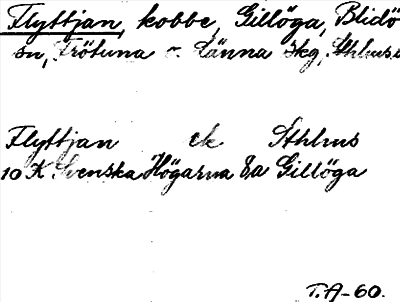 Flyttjan, kobbe, Gillöga, Blidö
sn, Frötuna o. Länna skg, Sthlms
Flyttjan ek Sthlms
10 K Svenska Högarna 8a Gillöga
T.A-60.